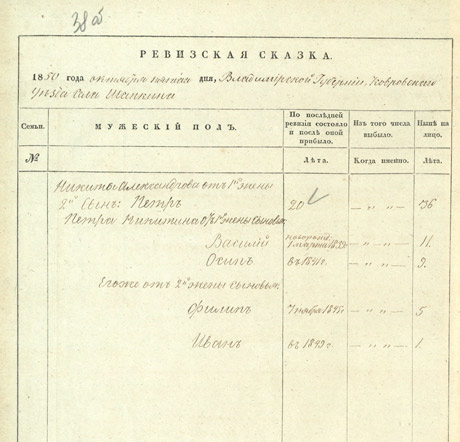 38а
РЕВИЗСКАЯ СКАЗКА.
1850 года октября дня, Владимірской Губерніи, Ковровскаго
уѣзда Села
Семьи. МУЖЕСКІЙ ПОЛЪ. По послѣдней ревизіи состояло и послѣ оной прибыло. Изъ того числа выбыло. Нынѣ на лицо.
№ Лѣта. Когда именно. Лѣта.
Никиты Александрова отъ 1й жены
2й Сынъ: Петръ 20 — „ „ — 36
Петра Никитина отъ 1й жены сыновья:
Василій — „ „ — 11.
Осипъ въ 1841г. — „ „ — 9.
Егоже отъ 2й жены сыновья:
Филипъ 7 ноября 1845г. — „ „ — 5
Иванъ въ 1849г. — „ „ — 1.